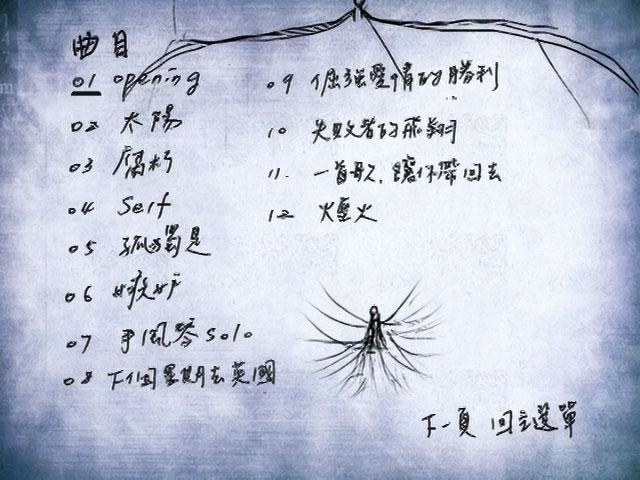 曲目
01 opening
02 太陽
03 腐朽
04 Self
05 孤獨是
06 嫉妒
07 手風琴solo
08 下個星期去英國
09 倔強愛情的勝利
10 失敗者的飛翔
11. 一首歌,讓你帶回去
12 煙火
下一頁 回主選單